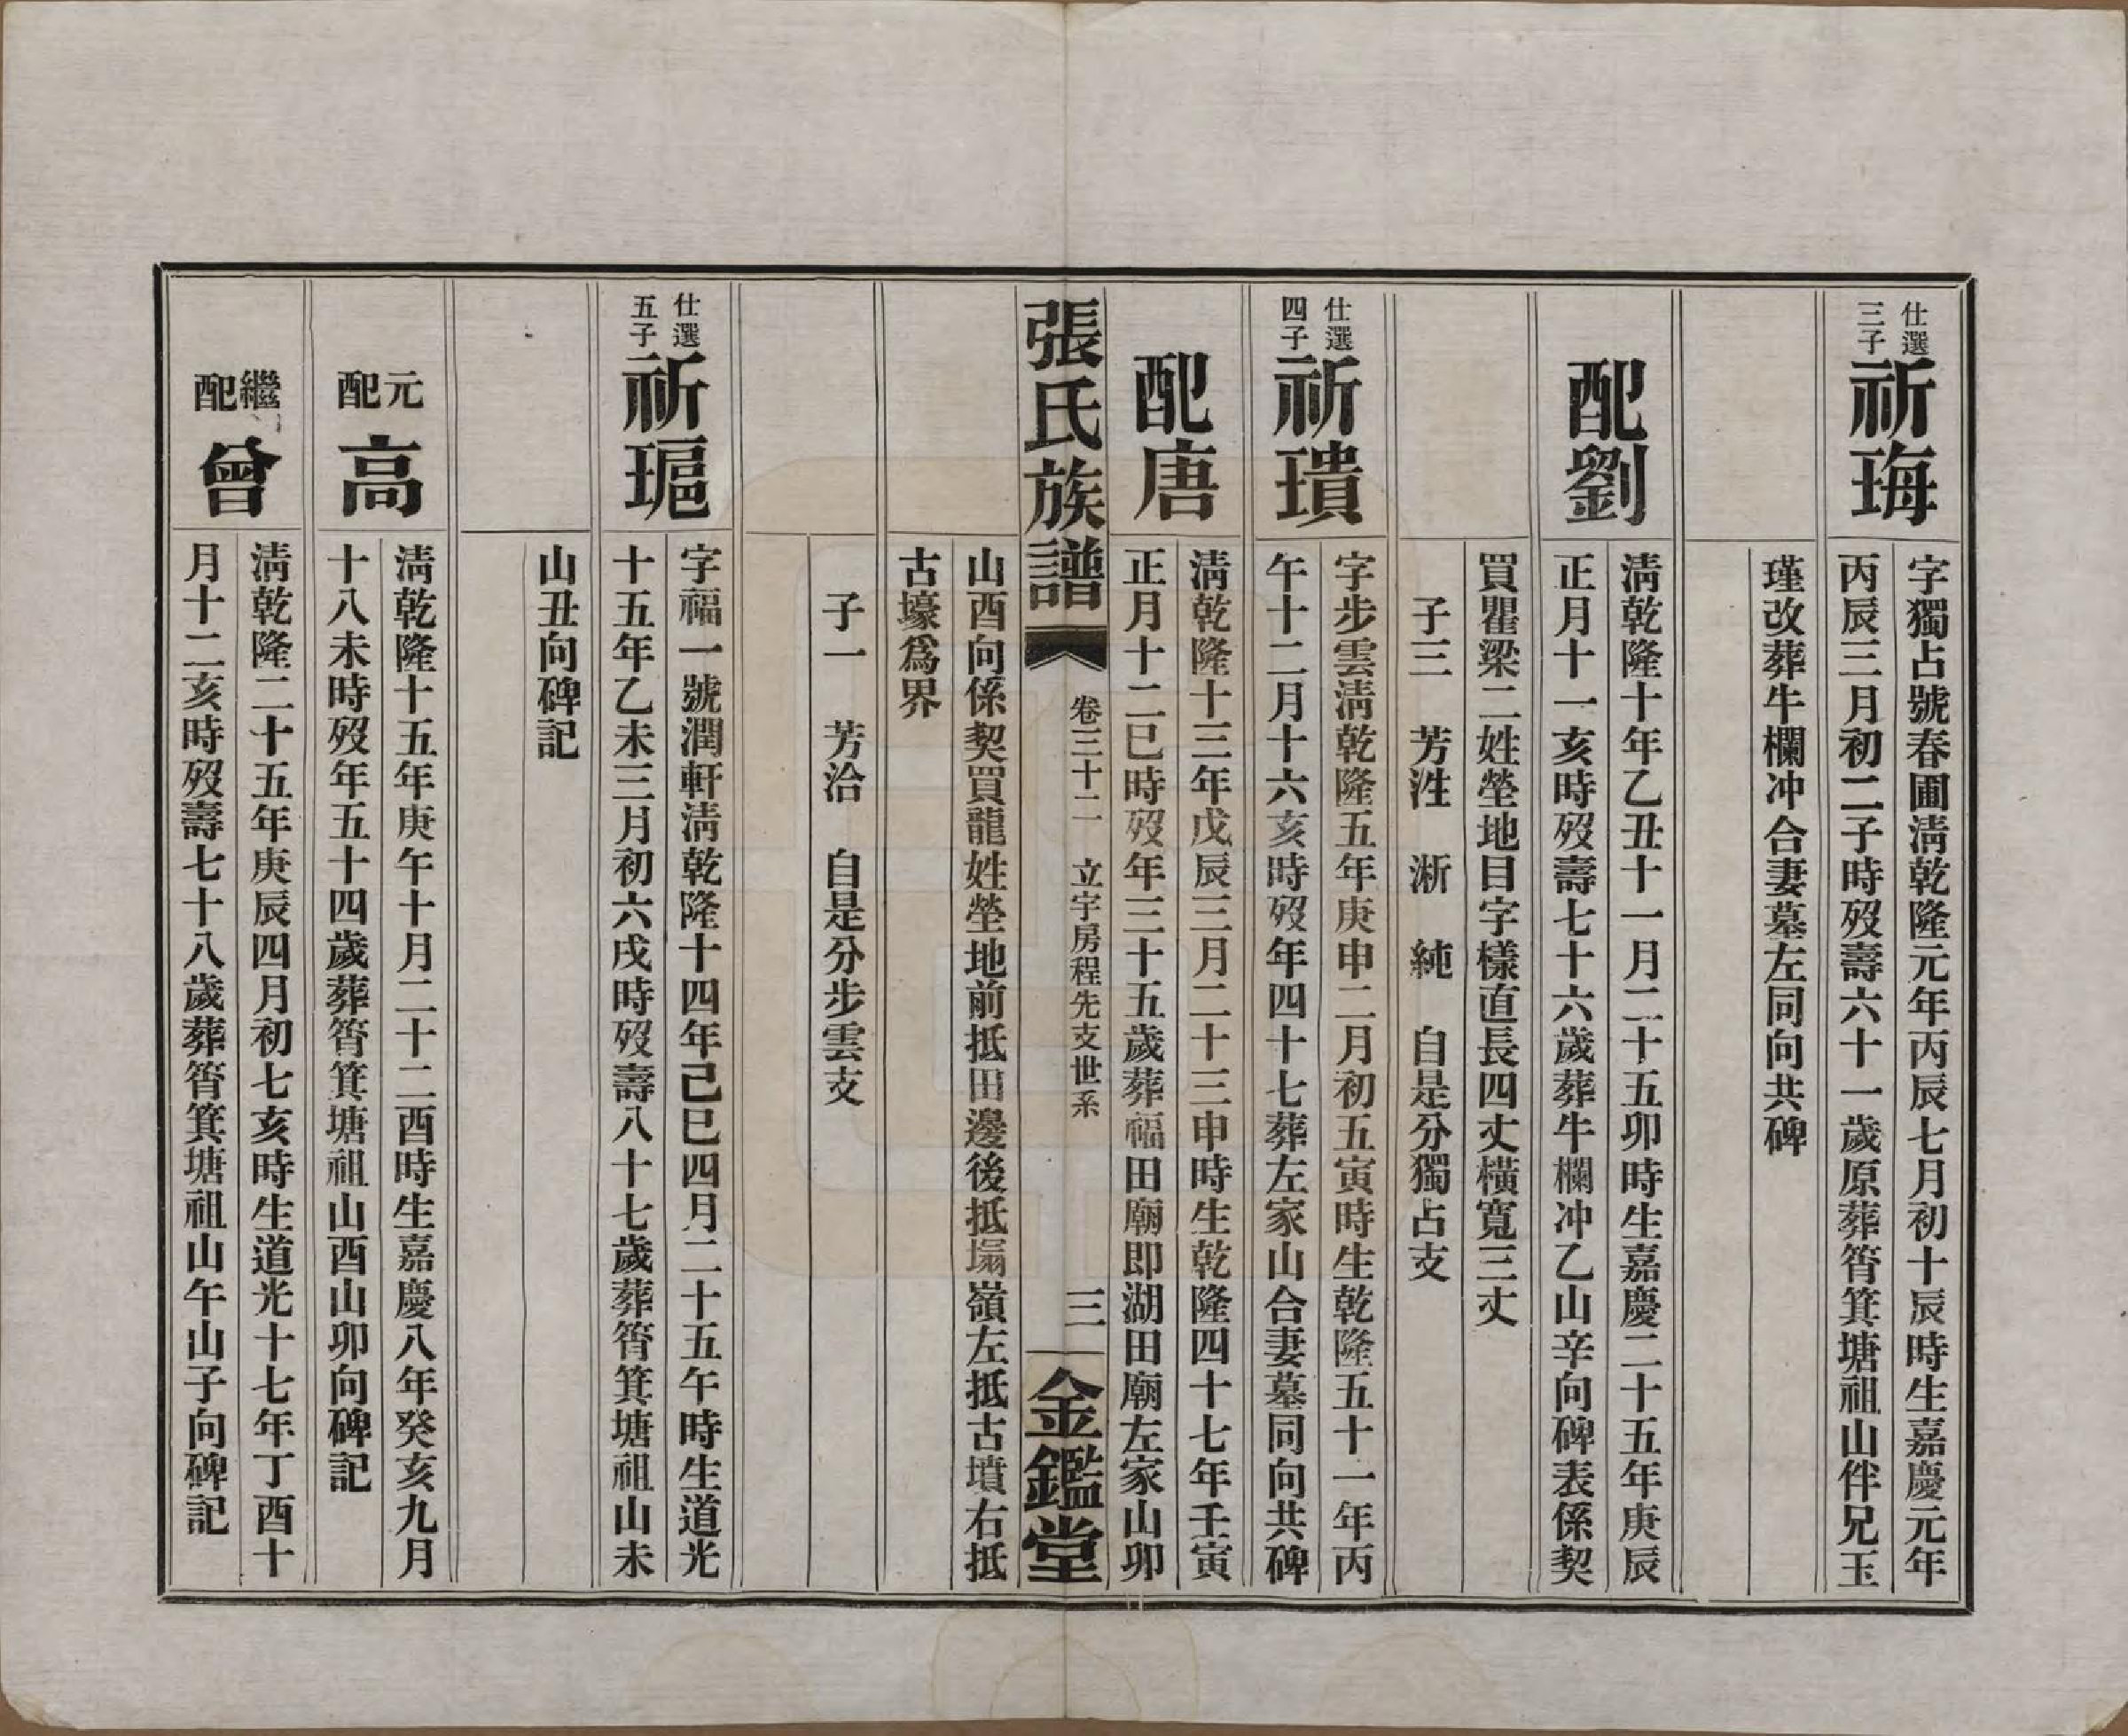 仕選
三子
祈珻
字獨占號春圃清乾隆元年丙辰七月初十辰時生嘉慶元年
丙辰三月初二子時歿壽六十一歲原葬筲箕塘祖山伴兄玉
瑾改葬牛欄冲合妻墓左同向共碑
配劉
清乾隆十年乙丑十一月二十五卯時生嘉慶二十五年庚辰
正月十一亥時歿壽七十六歲葬牛欄冲乙山辛向碑表係契
買瞿梁二姓塋地目字樣直長四丈橫寬三丈
子三 芳泩 淅 純 自是分獨占支
仕選
四子
祈璝
字步雲清乾隆五年庚申二月初五寅時生乾隆五十一年丙
午十二月十六亥時歿年四十七葬左家山合妻墓同向共碑
配唐
清乾隆十三年戊辰三月二十三申時生乾隆四十七年壬寅
正月十二巳時歿年三十五歲葬福田廟即湖田廟左家山卯
張氏族譜
卷三十二 立宇房程先支世系
三
金鑑堂
山酉向係契買龍姓塋地前抵田邊後抵塌嶺左抵古墳右抵
古壕爲界
子一 芳洽 自是分步雲支
仕選
五子
祈琩
字福一號潤軒清乾隆十四年己巳四月二十五午時生道光
十五年乙未三月初六戌時歿壽八十七歲葬筲箕塘祖山未
山丑向碑記
元配
高
清乾隆十五年庚午十月二十二酉時生嘉慶八年癸亥九月
十八未時歿年五十四歲葬筲箕塘祖山酉山卯向碑記
繼配
曾
清乾隆二十五年庚辰四月初七亥時生道光十七年丁酉十
月十二亥時歿壽七十八歲葬筲箕塘祖山午山子向碑記